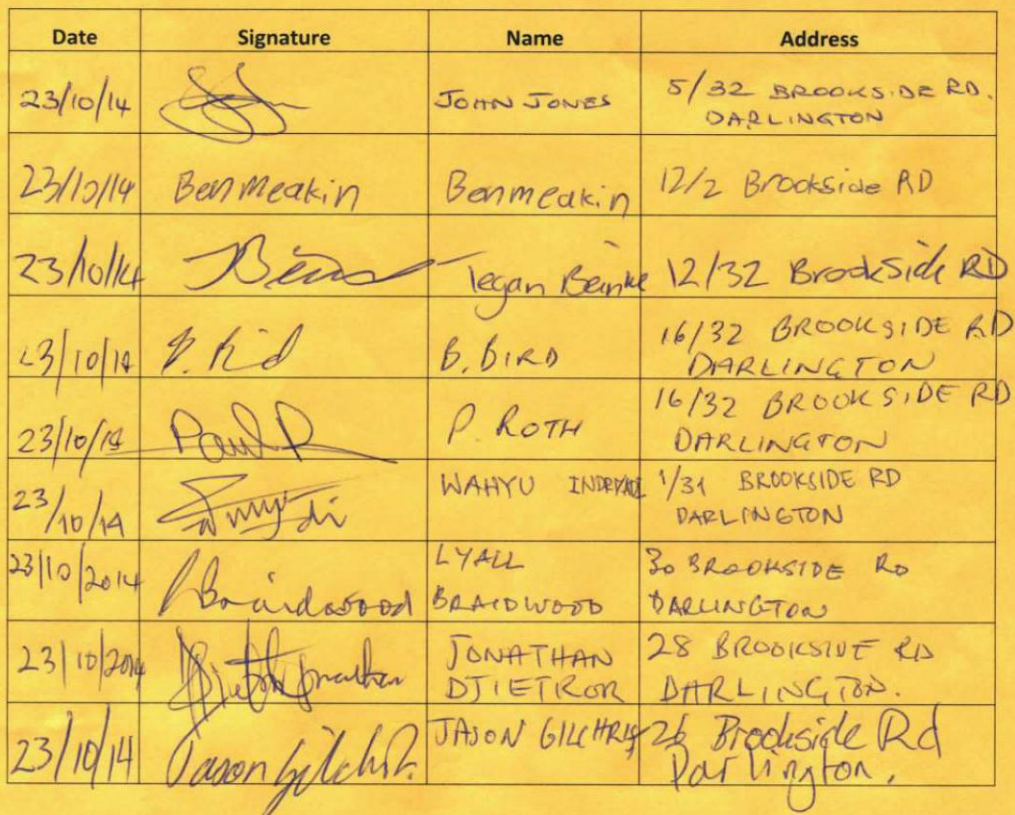 Date Signature Name Address
23/10/14 JOHN JONES 5/32 BROOKSIDE RD.
DARLINGTON
23/10/14 Ben Meakin Ben Meakin 12/2 Brookside RD
23/10/14 Tegan Beinke 12/32 Brookside RD
23/10/14 B. Bird B. BIRD 16/32 BROOKSIDE RD
DARLINGTON
23/10/14 Paul R P. ROTH 16/32 BROOKSIDE RD
DARLINGTON
23/10/14 WAHYU 1/31 BROOKSIDE RD
DARLINGTON
23/10/2014 LBraidwood LYALL 30 BROOKSIDE RD
BRAIDWOOD DARLINGTON
23/10/2014 JONATHAN 28 BROOKSIDE RD
DJIETROR DARLINGTON.
23/10/14 Jason Gilchrist JASON GILCHRIST 26 Brookside Rd
Darlington.